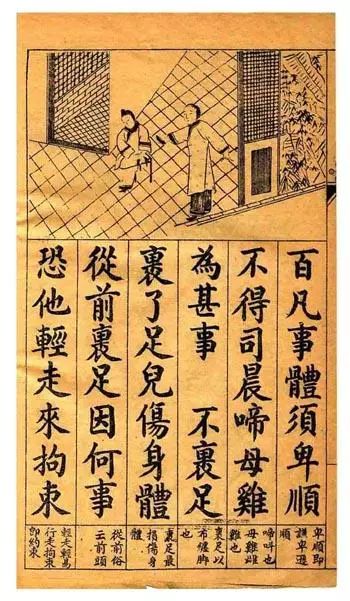 百凡事體須卑順
不得司晨啼母雞
為甚事　不裹足
裹了足兒傷身體
從前裹足因何事
恐他輕走來拘束
卑順即
謙卑遜
順
啼叫也
母雞雌
雞也
裹足以
布纏脚
也
裹足最
損傷身
體
從前俗
云前頭
輕走輕易
行走拘束
即約束